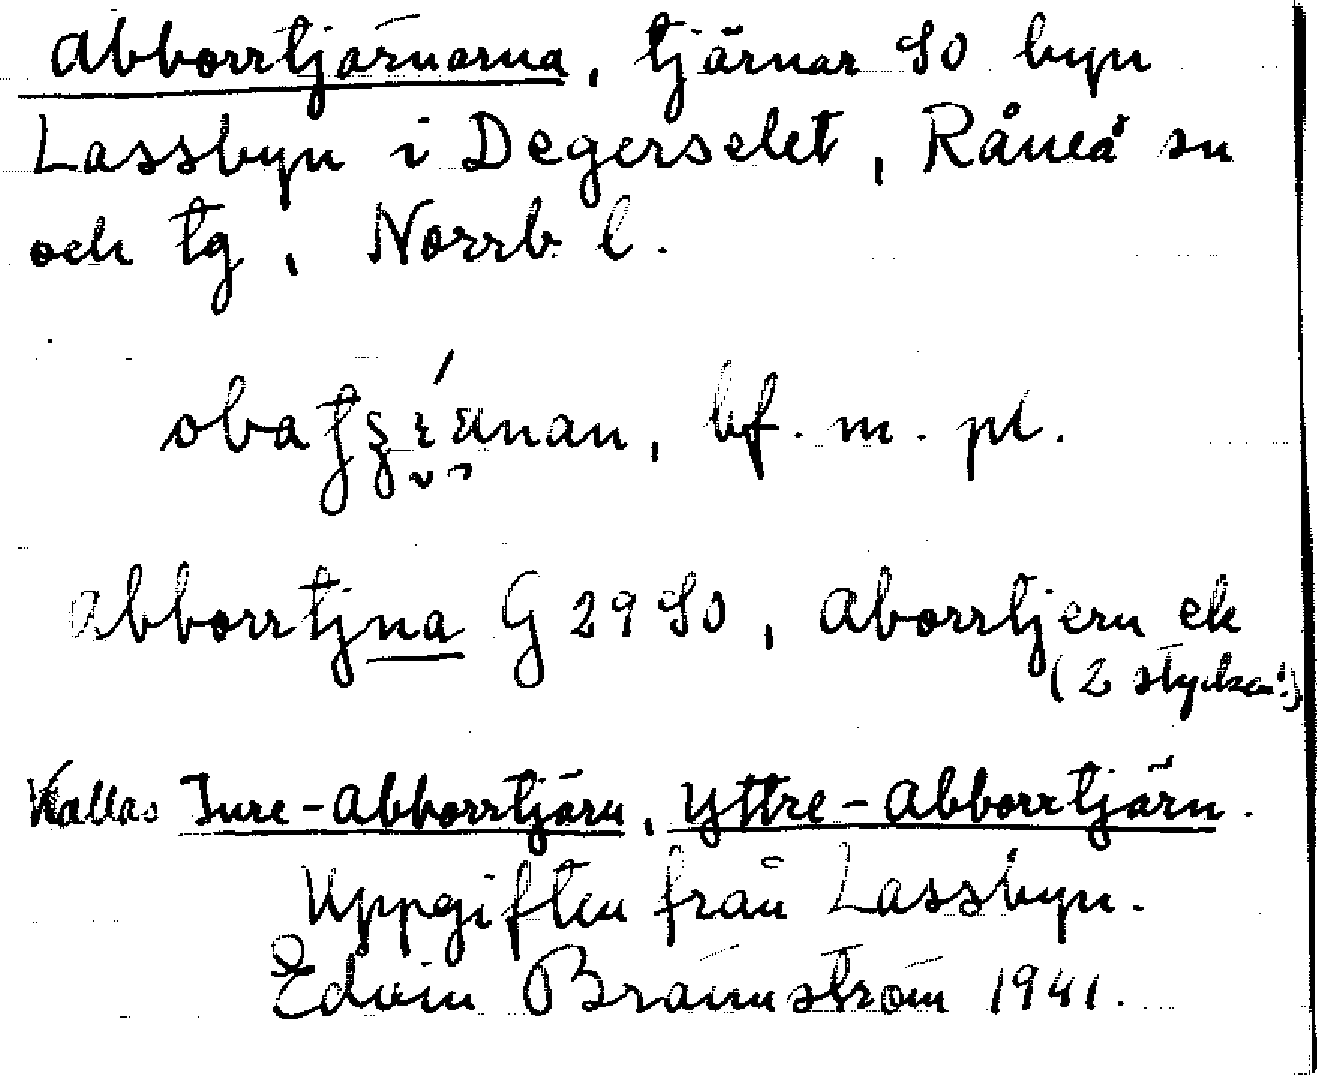 Abborrtjärnarna, tjärnar SO byn
Lassbyn i Degerselet, Råneå sn
och tg, Norrb l.
bf. m. pl.
Abborrtjna G 29 SO, Aborrtjern ek
(2 stycken!)
Kallas Inre-Abborrtjärn, Yttre-Abborrtjärn.
Uppgiften från Lassbyn.
Edvin Brännström 1941.